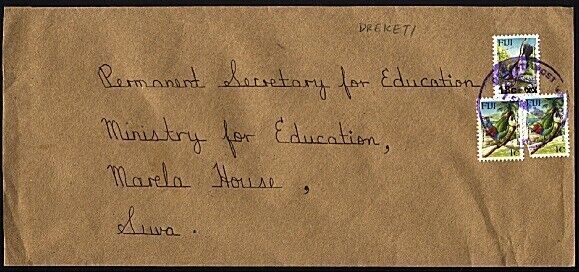 DREKETI
FIJI
Permanent Secretary for Education
FIJI FIJI
1c 1c
Ministry for Education,
Marela House,
Suva.